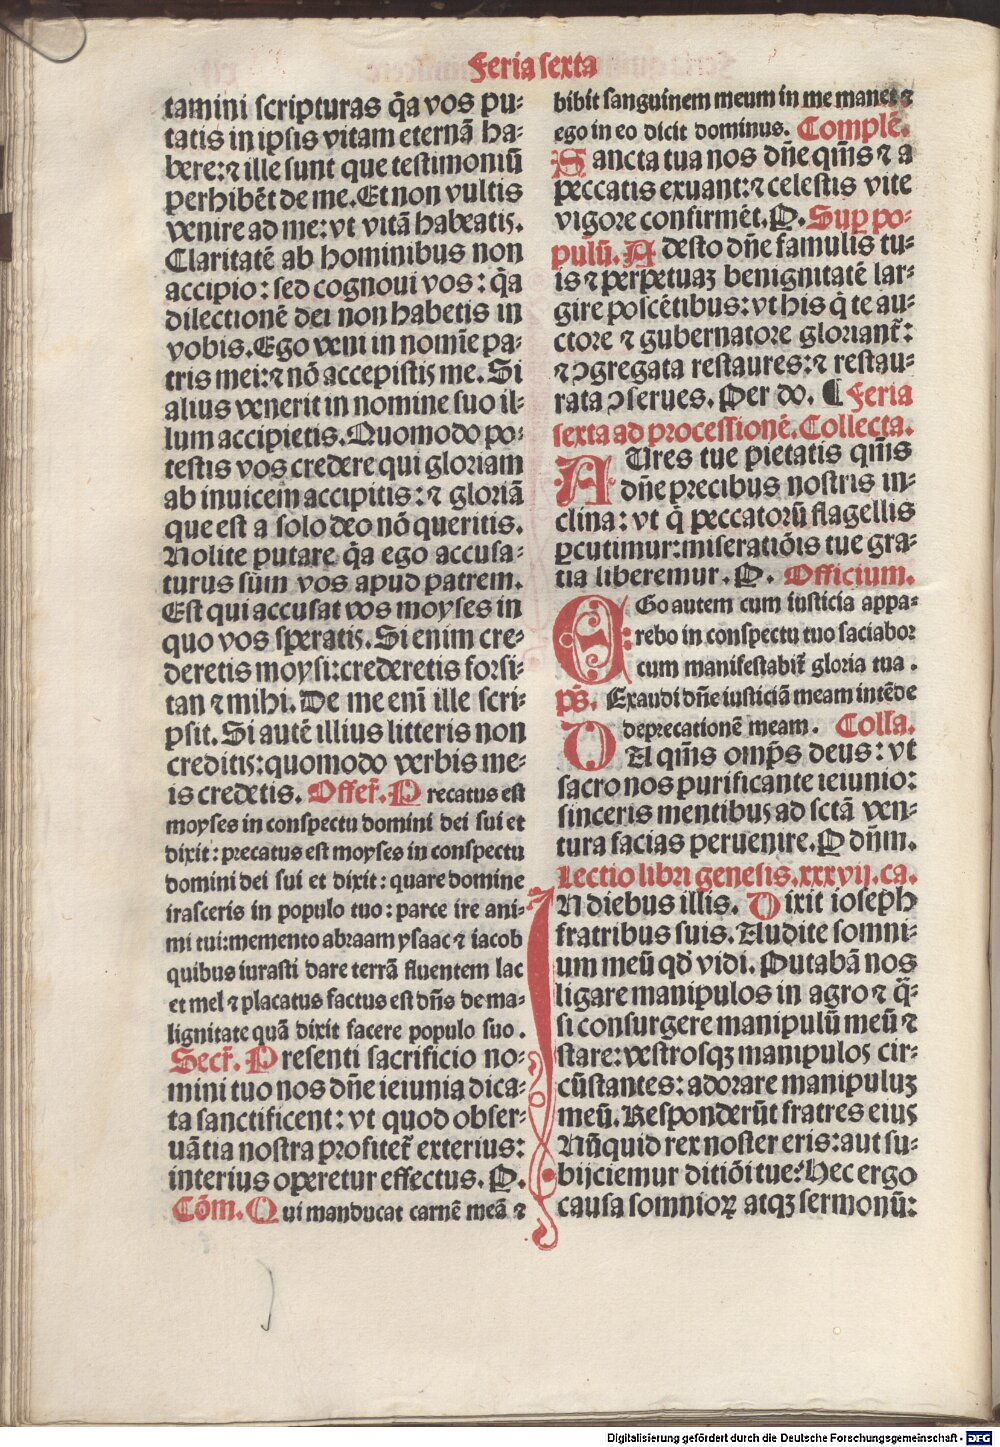 Feria sexta
tamini scripturas q̃a vos pu-
tatis in ipsis vitam eternã ha-
bere: ⁊ ille sunt que testimoniũ
perhibẽt de me. Et non vultis
venire ad me: vt vitã habeatis.
Claritatẽ ab hominibus non
accipio: sed cognoui vos: q̃a
dilectionẽ dei non habetis in
vobis. Ego veni in nomĩe pa-
tris mei: ⁊ nõ accepistis me. Si
alius venerit in nomine suo il-
lum accipietis. Quomodo po-
testis vos credere qui gloriam
ab inuicem accipitis: ⁊ gloriã
que est a solo deo nõ queritis.
Nolite putare q̃a ego accusa-
turus sum vos apud patrem.
Est qui accusat vos moyses in
quo vos speratis. Si enim cre-
deretis moysi: crederetis forsi-
tan ⁊ mihi. De me enĩ ille scri-
psit. Si autẽ illius litteris non
creditis: quomodo verbis me-
is credetis. Offer̃. Precatus est
moyses in conspectu domini dei sui et
dixit: precatus est moyses in conspectu
domini dei sui et dixit: quare domine
irasceris in populo tuo: parce ire ani-
mi tui: memento abraam ysaac ⁊ iacob
quibus iurasti dare terrã fluentem lac
et mel ⁊ placatus factus est dñs de ma-
lignitate quã dixit facere populo suo.
Secr̃. Presenti sacrificio no-
mini tuo nos dñe ieiunia dica-
ta sanctificent: vt quod obser-
uãtia nostra profitet̃ exterius:
interius operetur effectus. P.
Cõm. Qui manducat carnẽ meã ⁊
bibit sanguinem meum in me manet ⁊
ego in eo dicit dominus. Complẽ.
Sancta tua nos dñe qm̃s ⁊ a
peccatis exuant: ⁊ celestis vite
vigore confirmẽt. P. Sup po-
pulũ. Adesto dñe famulis tu-
is ⁊ perpetuaz benignitatẽ lar-
gire poscẽtibus: vt his q̃ te au-
ctore ⁊ gubernatore gloriant̃:
⁊ ꝯgregata restaures: ⁊ restau-
rata ꝯserues. Per do. ¶ Feria
sexta ad processionẽ. Collecta.
AUres tue pietatis qm̃s
dñe precibus nostris in-
clina: vt q̃ peccatorũ flagellis
ꝑcutimur: miseratiõis tue gra-
tia liberemur. P. Officium.
EGo autem cum iusticia appa-
rebo in conspectu tuo saciabor
cum manifestabit̃ gloria tua.
ps̃. Exaudi dñe iusticiã meam intẽde
deprecationẽ meam. Colla.
DA qm̃s omp̃s deus: vt
sacro nos purificante ieiunio:
sinceris mentibus ad sctã ven-
tura facias peruenire. P dñm.
Lectio libri genesis. xxxvij. ca.
IN diebus illis. Dixit ioseph
fratribus suis. Audite somni-
um meũ qd̃ vidi. Putabã nos
ligare manipulos in agro ⁊ q̃-
si consurgere manipulũ meũ ⁊
stare: vestrosqz manipulos cir-
cũstantes: adorare manipuluz
meũ. Responderũt fratres eius
Nũquid rex noster eris: aut su-
bijciemur ditiõi tue? Hec ergo
causa somnioꝝ atqz sermonũ:
Digitalisierung gefördert durch die Deutsche Forschungsgemeinschaft - DFG